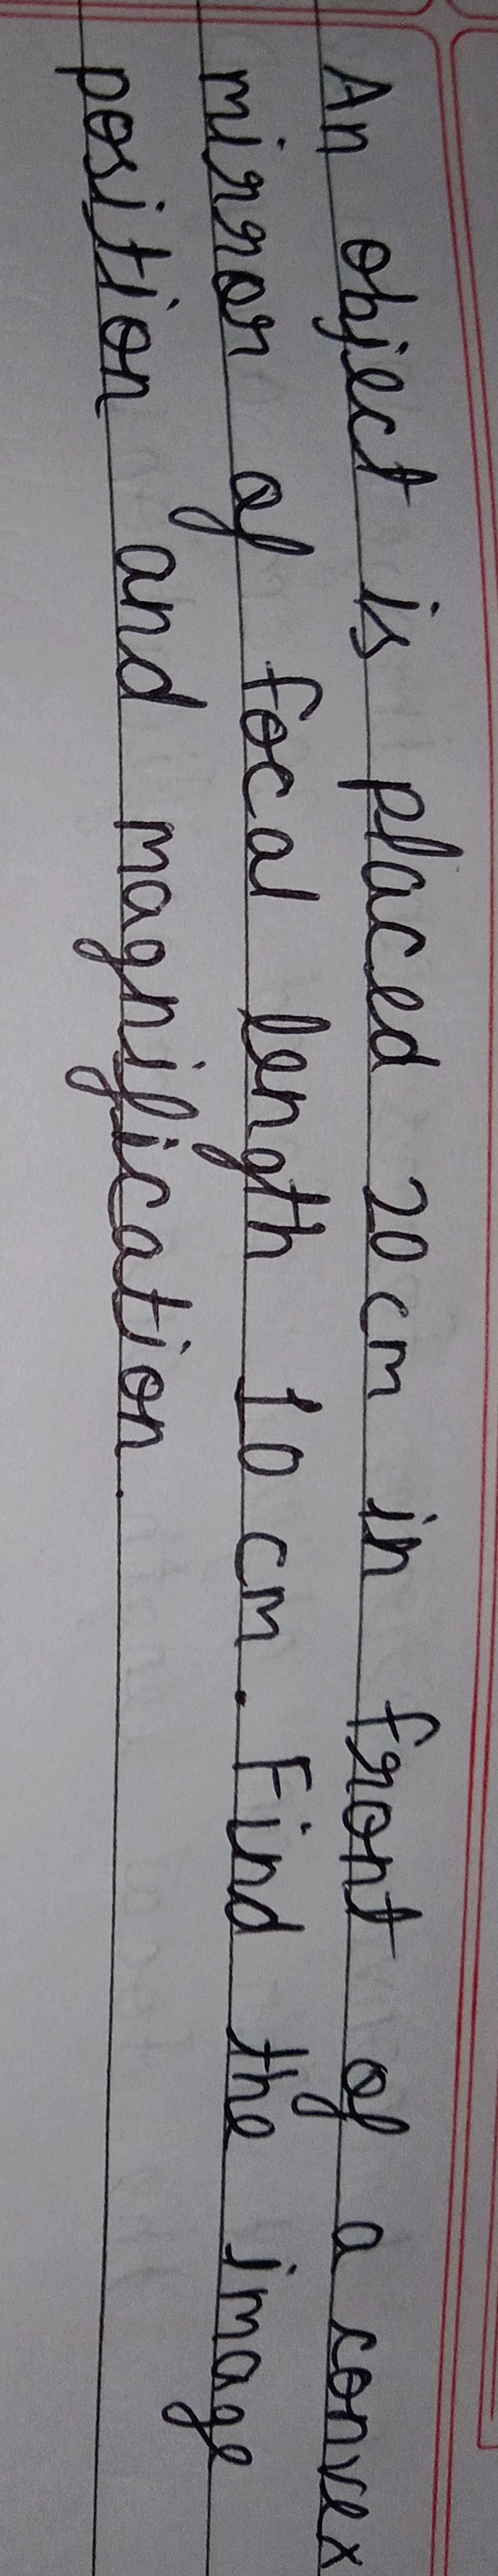 An object is placed 20 cm in front of a convex
mirror of focal length 10 cm. Find the image
position and magnification.